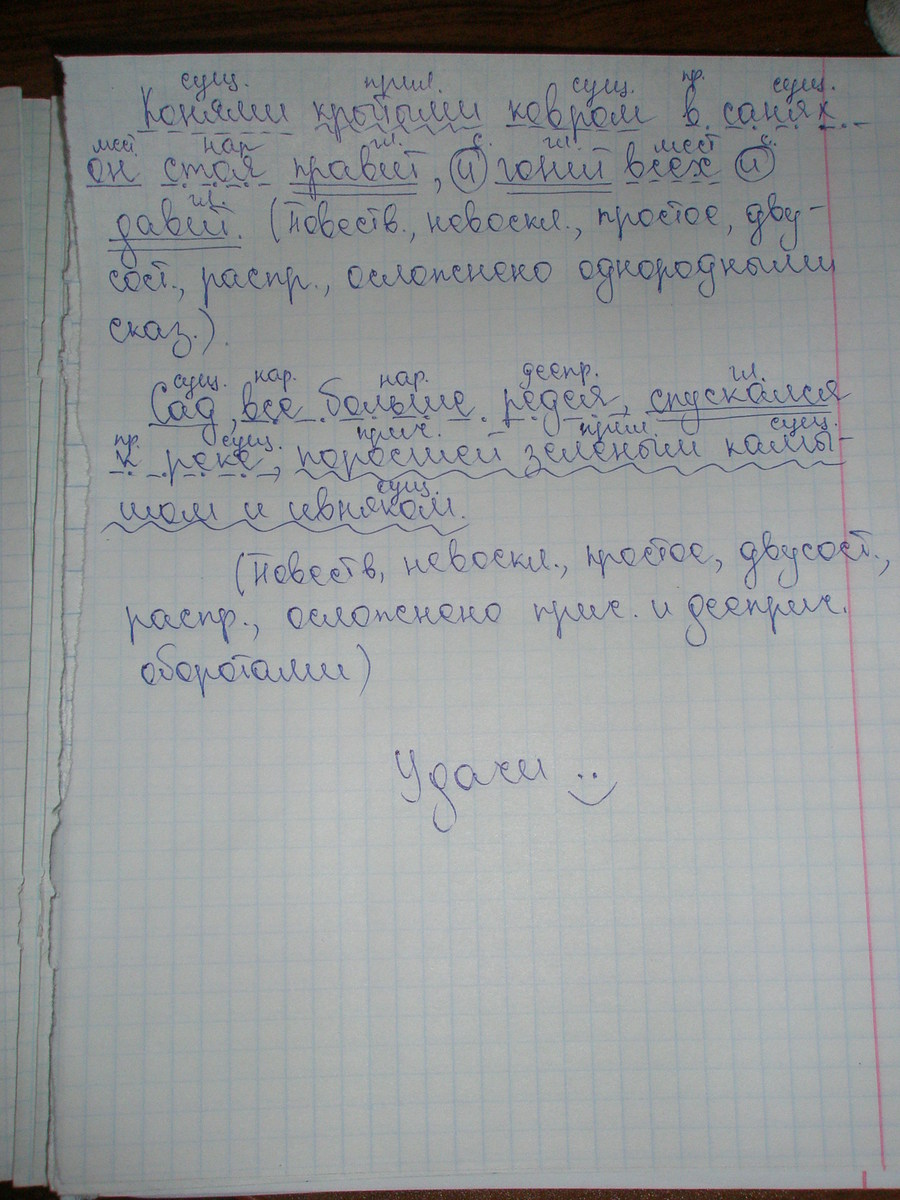 сущ. прил. сущ. пр. сущ.
Конями крытыми ковром в санях
мест нар гл. с. гл. мест с.
он стоя правит, и гонит всех и
гл.
давит. (Повеств., невоскл., простое, дву-
сост., распр., осложнено однородными
сказ.).
сущ. нар. нар. дееп. гл.
Сад, все больше редея, спускался
пр. сущ. прич. прил. сущ.
к реке, поросшей зеленым камы-
сущ.
шом и ивняком.
(Повеств, невоскл., простое, двусост.,
распр., осложнено прич. и дееприч.
оборотами)
Удачи